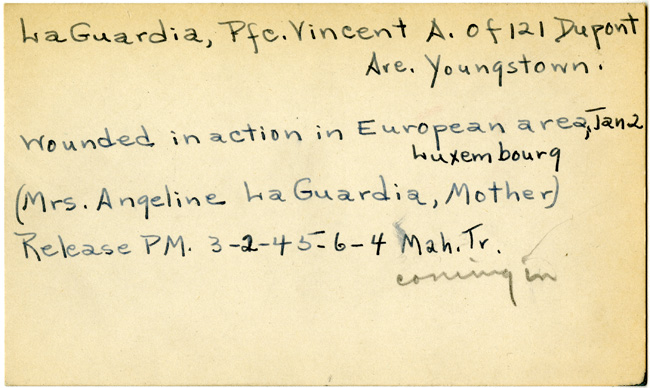 LaGuardia, Pfc. Vincent A. of 121 Dupont
Ave. Youngstown.
Wounded in action in European area, Jan 2
Luxembourg
(Mrs. Angeline LaGuardia, Mother)
Release PM. 3-2-45-6-4 Mah. Tr.
coming in